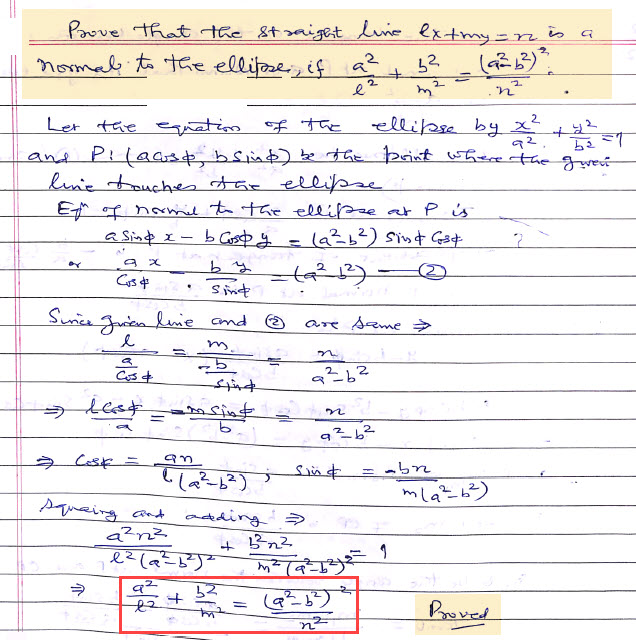 Prove that the straight line lx+my=n is a
normal to the ellipse, if a²/l² + b²/m² = (a²-b²)²/n².
Let the equation of the ellipse by x²/a² + y²/b² = 1
and P: (acosφ, bsinφ) be the point where the given
line touches the ellipse
Eqn of normal to the ellipse at P is
a sinφ x - b cosφ y = (a²-b²) sinφ cosφ
or ax/cosφ - by/sinφ = (a²-b²) — ②
Since given line and ② are same ⇒
l/(a/cosφ) = m/(-b/sinφ) = n/(a²-b²)
⇒ l cosφ/a = -m sinφ/b = n/(a²-b²)
⇒ cosφ = an/(l(a²-b²)), sinφ = -bn/(m(a²-b²))
Squaring and adding ⇒
a²n²/(l²(a²-b²)²) + b²n²/(m²(a²-b²)²) = 1
⇒ a²/l² + b²/m² = (a²-b²)²/n² Proved